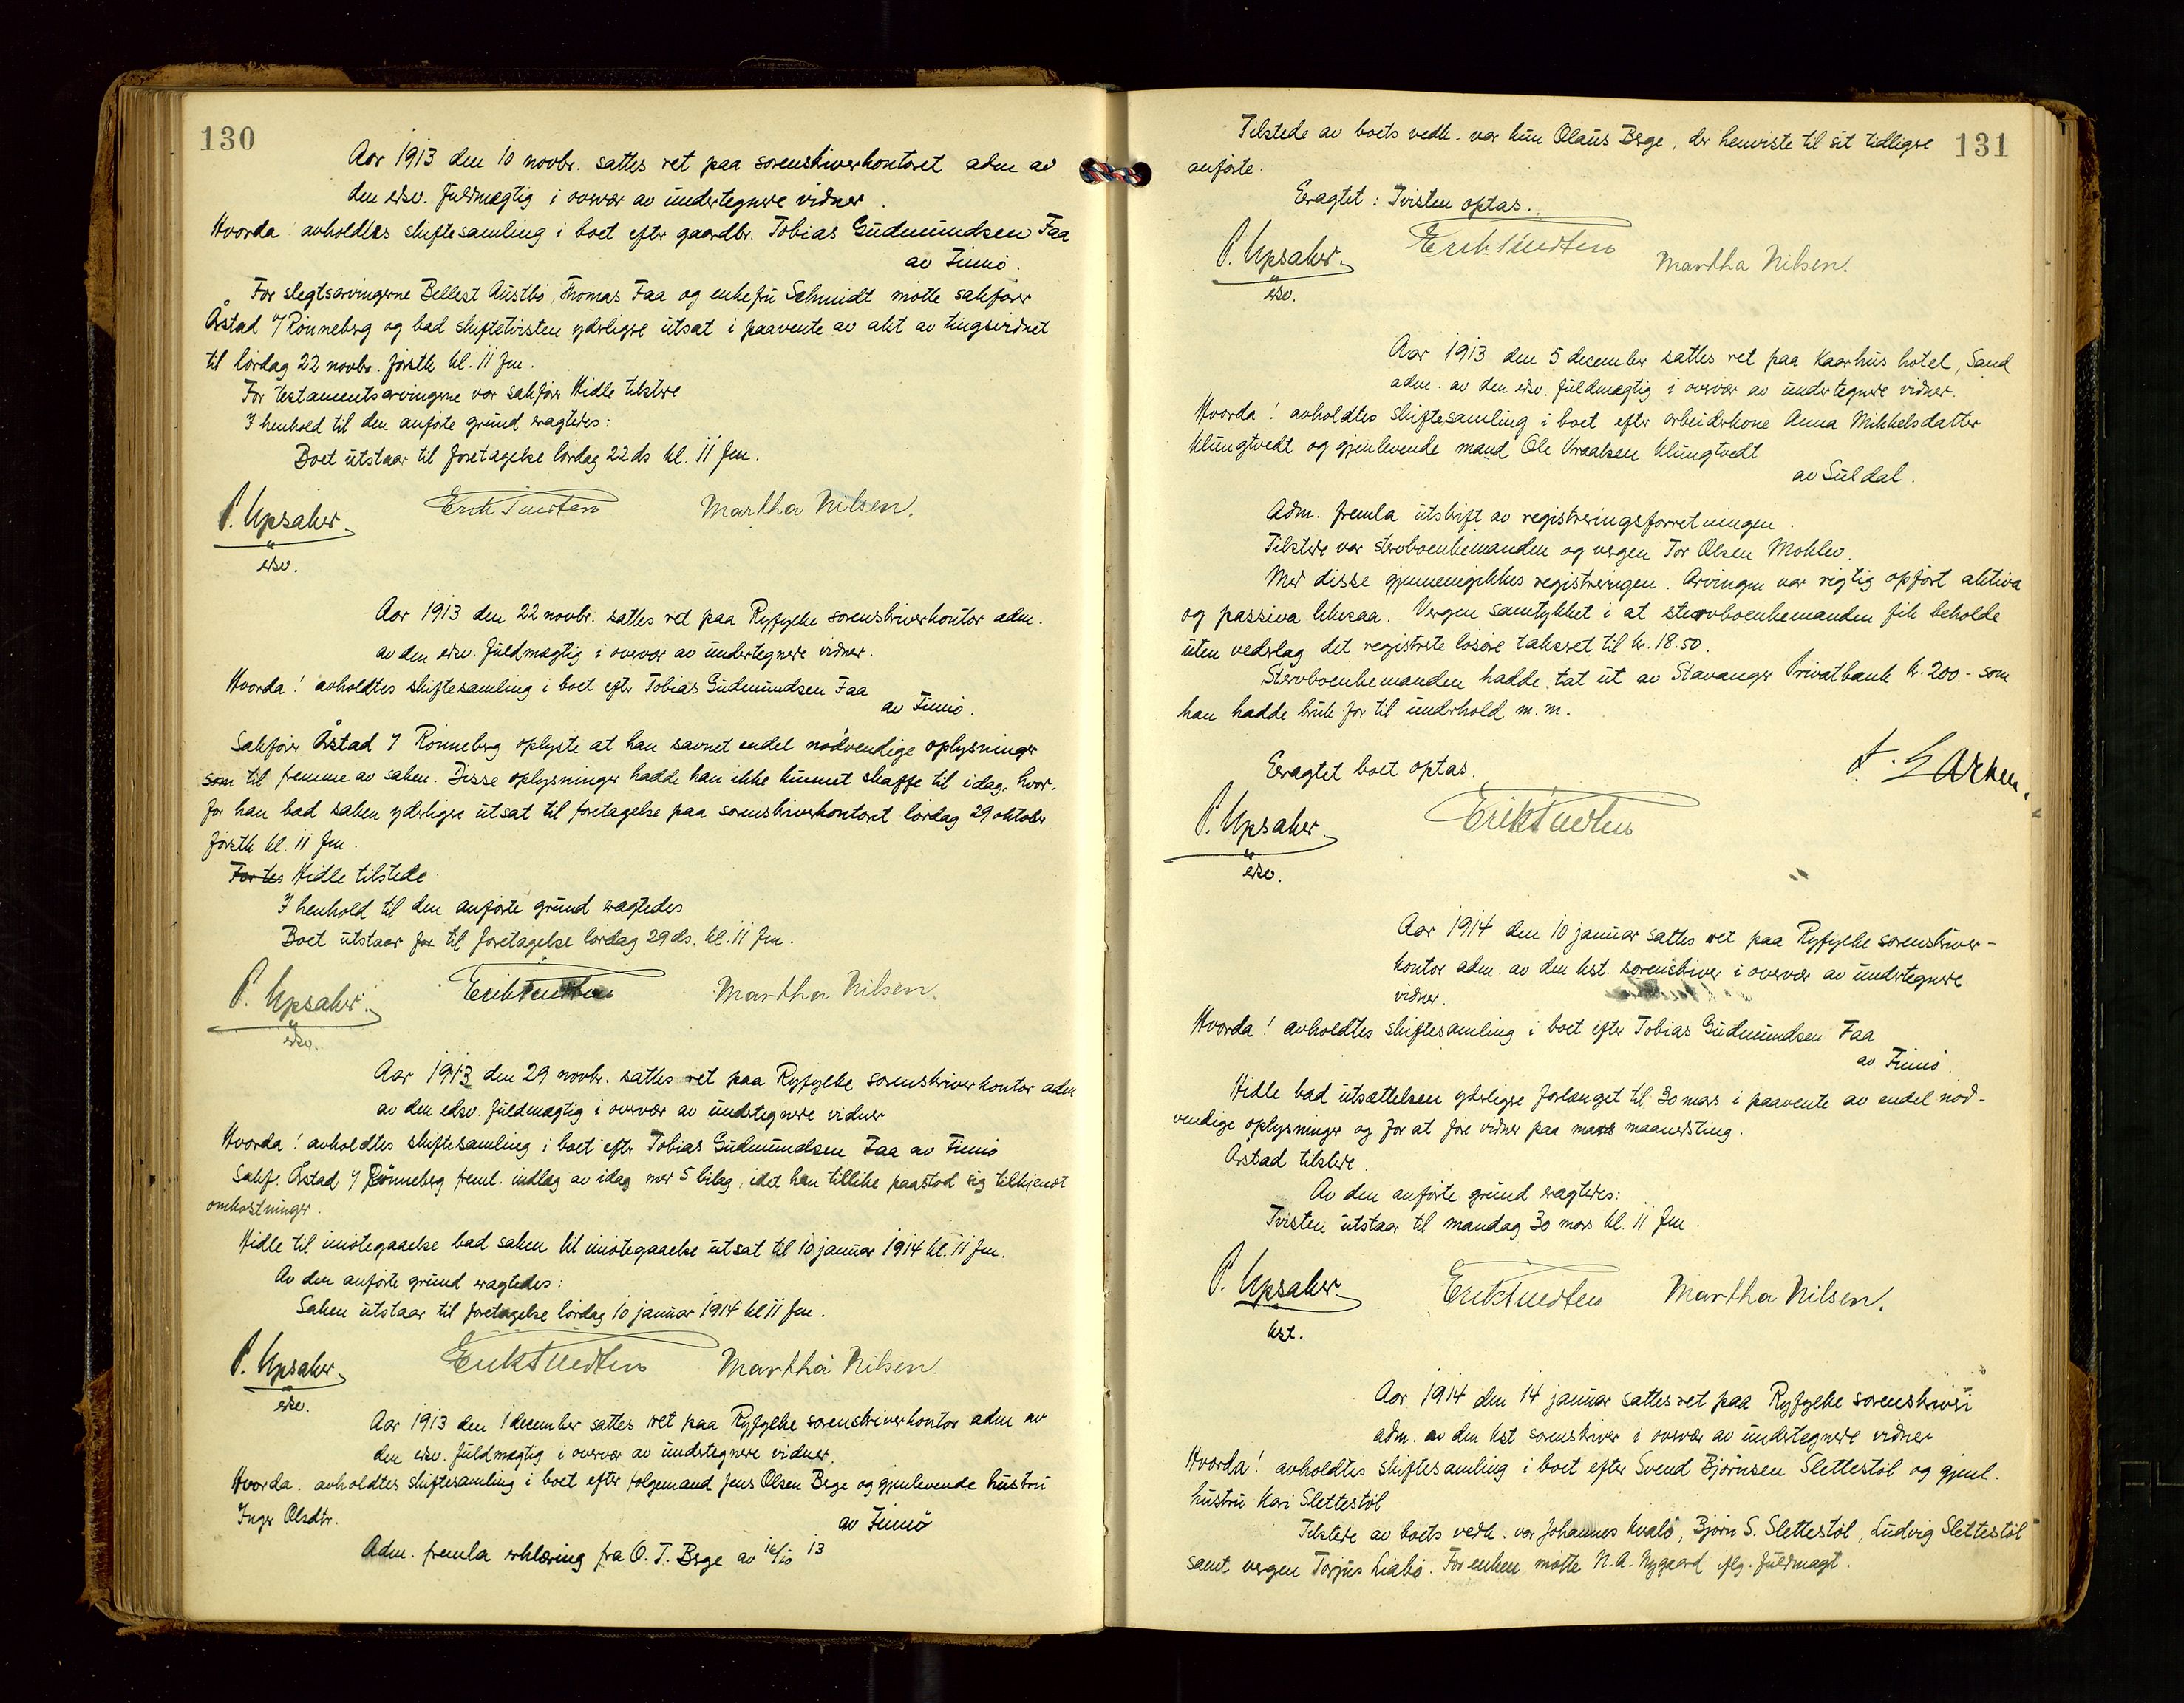 130
Aar 1913 den 10 novbr. sattes ret paa sorenskriverkontoret adm av
den edsv. fuldmægtig i overvær av undertegnede vidner.
Hvorda avholdtes skiftesamling i boet efter gaardbr. Tobias Gudmundsen Faa
av Finnø.
For slegtsarvingerne Bellest Austbø, Thomas Faa og enkefru Schmidt møtte sakfører
Åstad v/ Rönneberg og bad skiftetvisten yderligere utsat i paavente av akt av tingsvidnet
til lørdag 22 novbr. førstk kl. 11 fm.
For testamentsarvingerne var sakfører Hidle tilstede
I henhold til den anførte grund eragtedes:
Boet utstaar til foretagelse lørdag 22 ds kl. 11 fm.
P. Upsaker Erik Tuedten Martha Nilsen.
edsv.
Aar 1913 den 22 novbr. sattes ret paa Ryfylke sorenskriverkontor adm.
av den edsv. fuldmægtig i overvær av undertegnede vidner.
Hvorda! avholdtes skiftesamling i boet efter Tobias Gudmundsen Faa
av Finnø.
Sakfører Åstad v/ Rönneberg oplyste at han savnet endel nødvendige oplysninger
som til fremme av saken. Disse oplysninger hadde han ikke kunnet skaffe til idag, hvor-
for han bad saken yderligere utsat til foretagelse paa sorenskriverkontoret lørdag 29 oktober
førstk kl. 11 fm.
For tes Hidle tilstede
I henhold til den anførte grund eragtedes
Boet utstaar for til foretagelse lørdag 29 ds. kl. 11 fm.
P. Upsaker Erik Tuedten Martha Nilsen.
edsv.
Aar 1913 den 29 novbr. sattes ret paa Ryfylke sorenskriverkontor adm
av den edsv. fuldmægtig i overvær av undertegnede vidner
Hvorda! avholdtes skiftesamling i boet efter Tobias Gudmundsen Faa av Finnø
Sakf. Åstad v/ Rönneberg freml. indlæg av idag med 5 bilag, idet han tillike paastod sig tilkjendt
omkostninger.
Hidle til imøtegaaelse bad saken til imøtegaaelse utsat til 10 januar 1914 kl. 11 fm.
Av den anførte grund eragtedes:
Saken utstaar til foretagelse lørdag 10 januar 1914 kl 11 fm.
P. Upsaker Erik Tuedten Martha Nilsen.
edsv.
Aar 1913 den 1 december sattes ret paa Ryfylke sorenskriverkontor adm av
den edsv. fuldmægtig i overvær av undertegnede vidner.
Hvorda. avholdtes skiftesamling i boet efter folgemand Jens Olsen Berge og gjenlevende hustru
Inger Olsdtr.
av Finnø
Adm. fremla erklæring fra O. J. Berge av 16/10 13
131
Tilstede av boets vedk. var kun Olaus Berge, der henviste til sit tidligere
anførte.
Eragtet: Tvisten optas.
P. Upsaker Erik Tuedten Martha Nilsen.
edsv.
Aar 1913 den 5 december sattes ret paa Kaarhus hotel, Sand
adm. av den edsv. fuldmægtig i overvær av undertegnede vidner.
Hvorda! avholdtes skiftesamling i boet efter arbeiderkone Anna Mikkelsdatter
Klungtvedt og gjenlevende mand Ole Vraalsen Klungtvedt
av Suldal.
Adm. fremla utskrift av registreringsforretningen.
Tilstede var stervboenkemanden og vergen Tor Olsen Moklev.
Med disse gjennemgikkes registreringen. Arvingen var rigtig opført aktiva
og passiva likesaa. Vergen samtykket i at stervboenkemanden fik beholde
uten vederlag det registrerte løsøre takseret til kr. 18.50.
Stervboenkemanden hadde tat ut av Stavanger Privatbank kr. 200.- som
han hadde bruk for til underhold m.m.
Eragtet boet optas. Larsen.
P. Upsaker Erik Tuedten
edsv.
Aar 1914 den 10 januar sattes ret paa Ryfylke sorenskriver-
kontor adm. av den kst. sorenskriver i overvær av undertegnede
vidner.
Hvorda! avholdtes skiftesamling i boet efter Tobias Gudmundsen Faa
av Finnø.
Hidle bad utsættelsen yderligere forlænget til 30 mars i paavente av endel nød-
vendige oplysninger og for at føre vidner paa mars maanedsting.
Åstad tilstede.
Av den anførte grund eragtedes:
Tvisten utstaar til mandag 30 mars kl. 11 fm.
P. Upsaker Erik Tuedten Martha Nilsen.
kst.
Aar 1914 den 14 januar sattes ret paa Ryfylke sorenskriveri
adm. av den kst sorenskriver i overvær av undertegnede vidner
Hvorda! avholdtes skiftesamling i boet efter Svend Bjørnsen Slettestøl og gjenl.
hustru Kari Slettestøl
Tilstede av boets vedk. var Johannes Kvalø, Bjørn S. Slettestøl, Ludvig Slettestøl
samt vergen Torjus Liabø. For enken møtte N. A. Nygaard iflg. fuldmagt.